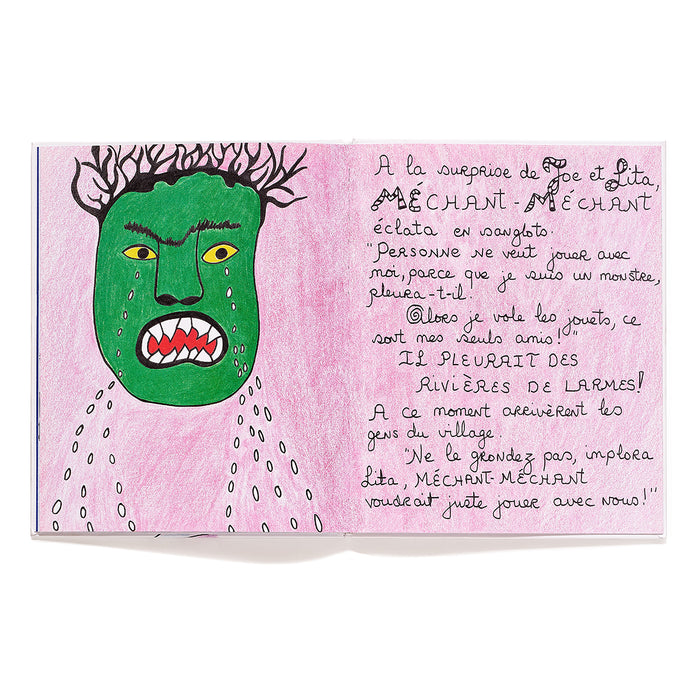 A la surprise de Joe et Lita,
MÉCHANT-MÉCHANT
éclata en sanglots.
"PERSONNE ne veut jouer avec
moi, parce que je suis un monstre,
pleura-t-il.
Alors je vole les jouets, ce
sont mes seuls amis!"
IL PLEURAIT DES
RIVIÈRES DE LARMES!
A ce moment arrivèrent les
gens du village.
"Ne le grondez pas, implora
Lita, MÉCHANT-MÉCHANT
voudrait juste jouer avec nous!"